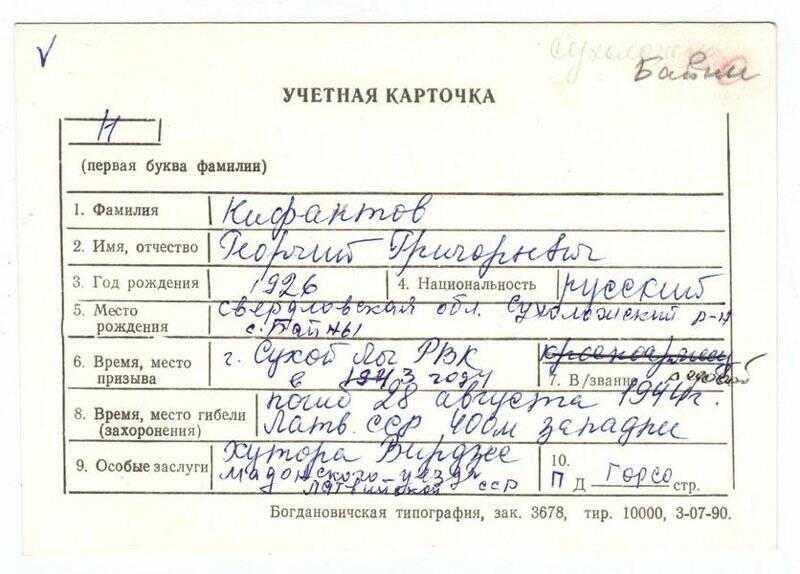 Байны
УЧЕТНАЯ КАРТОЧКА
Н
(первая буква фамилии)
1. Фамилия Нифантов
2. Имя, отчество Георгий Григорьевич
3. Год рождения 1926 4. Национальность русский
5. Место рождения Свердловская обл. Сухоложский р-н
с. Байны
6. Время, место призыва г. Сухой Лог РВК
в 1943 году
7. В/звание рядовой
8. Время, место гибели (захоронения) погиб 28 августа 1944 г.
Латв. ССР 400м западнее
9. Особые заслуги хутора Вирдзес
Мадонского уезда
Латвийской ССР
10. П Д Горсо стр.
Богдановичская типография, зак. 3678, тир. 10000, 3-07-90.